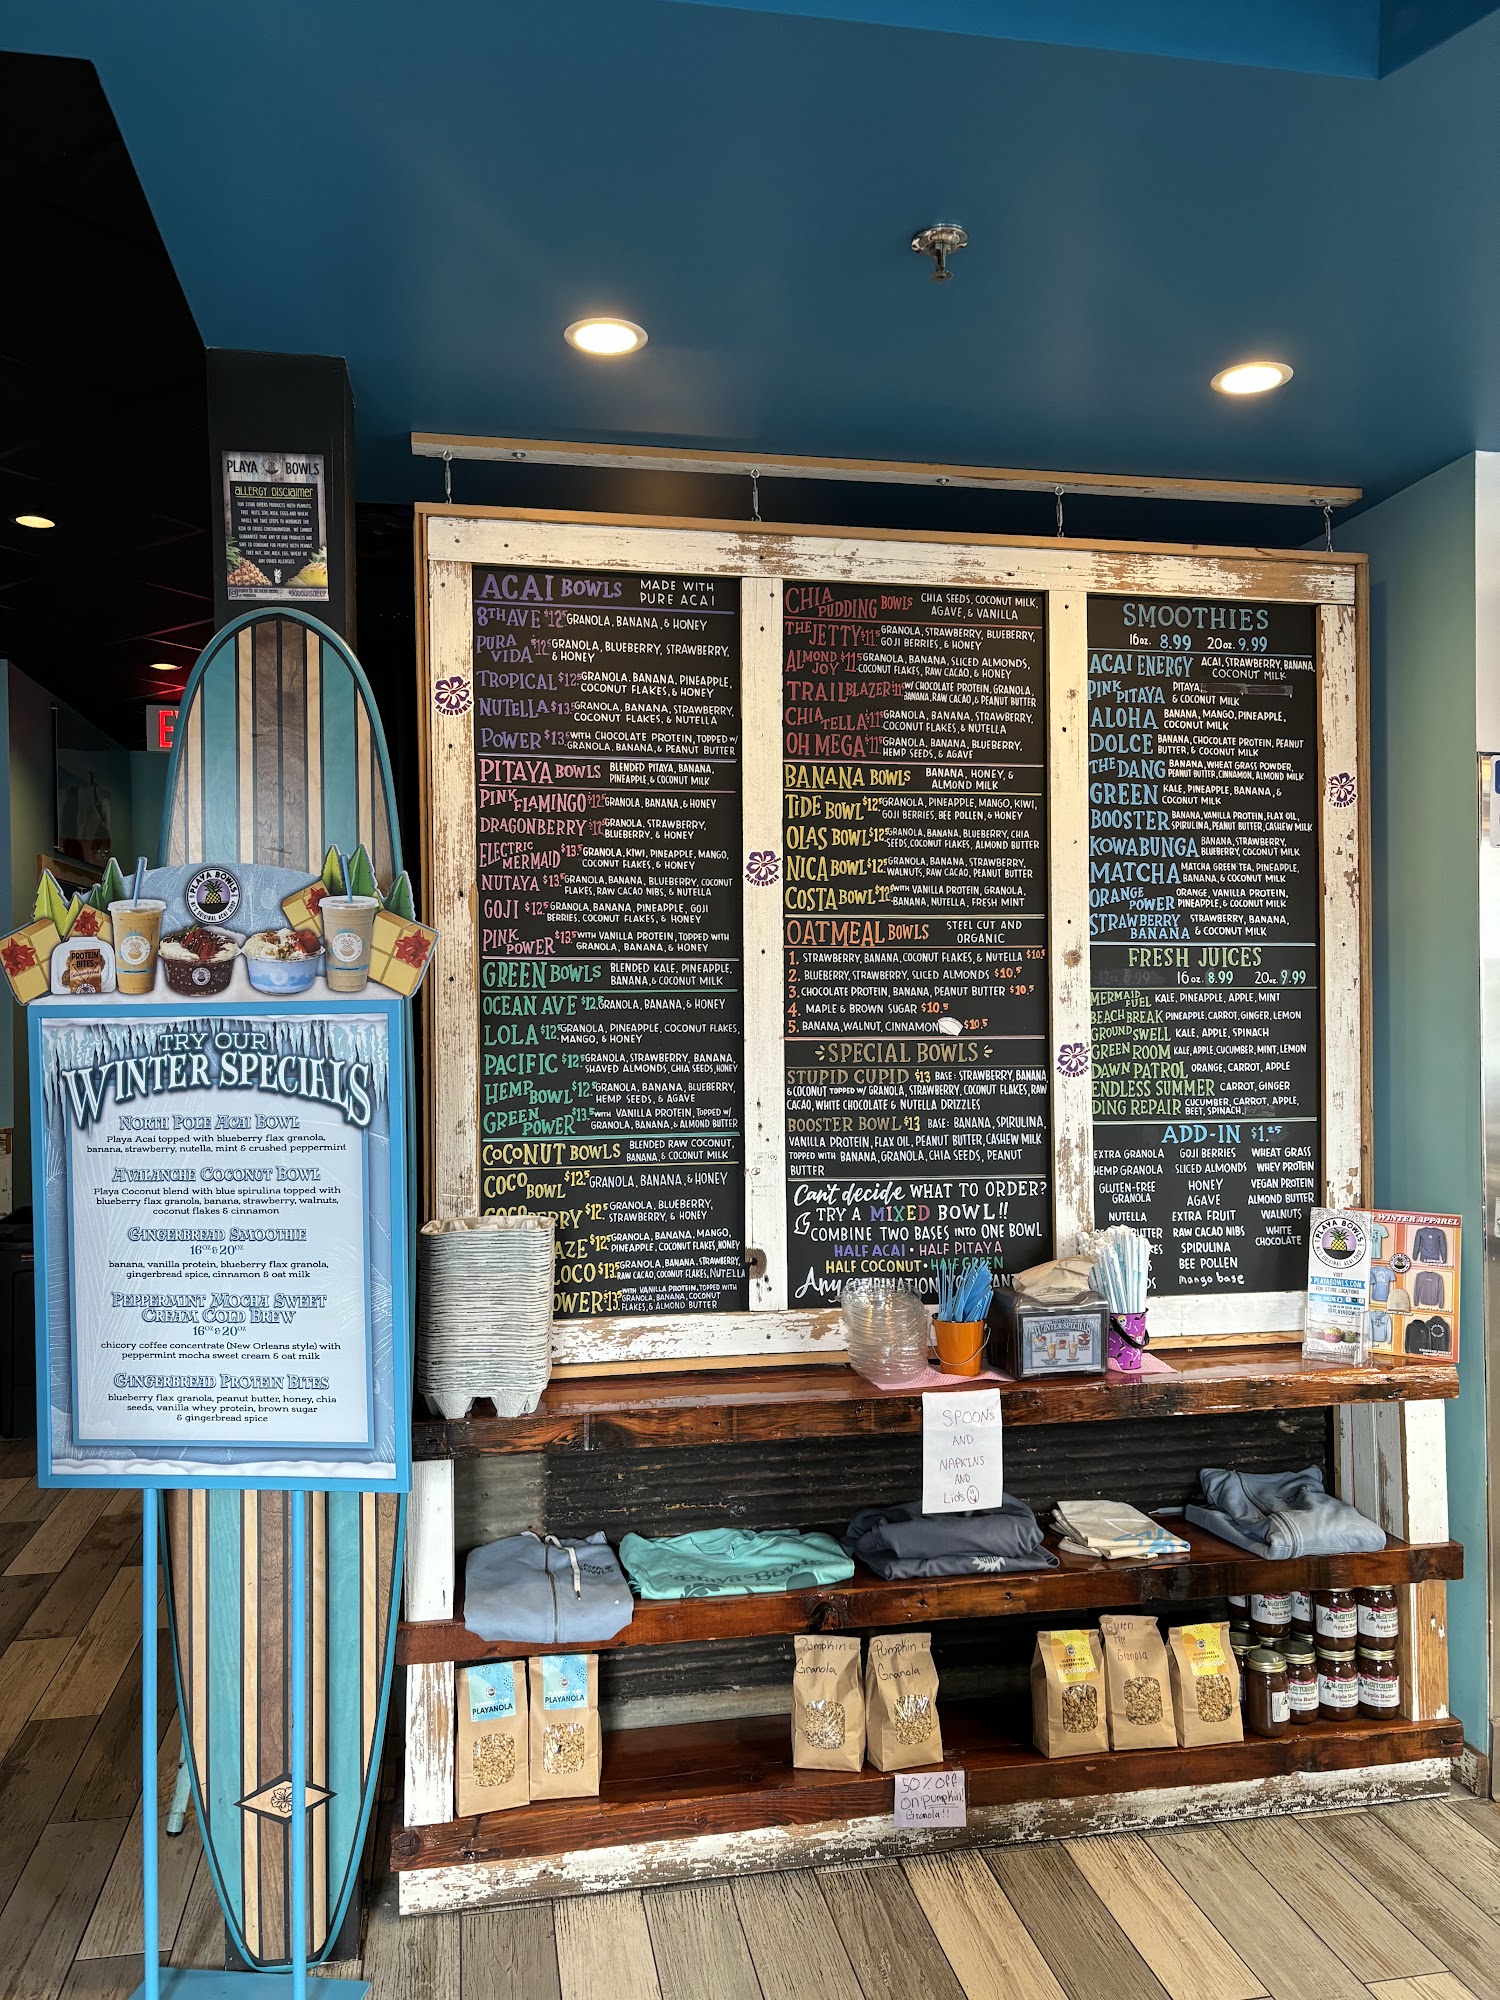 PLAYA BOWLS
ALLERGY DISCLAIMER
OUR STORE OFFERS PRODUCTS WITH PEANUTS,
TREE NUTS, SOY, MILK, EGGS AND WHEAT.
WHILE WE TAKE STEPS TO MINIMIZE THE
RISK OF CROSS CONTAMINATION, WE CANNOT
GUARANTEE THAT ANY OF OUR PRODUCTS ARE
SAFE TO CONSUME FOR PEOPLE WITH PEANUT,
TREE NUT, SOY, MILK, EGG, WHEAT OR
ANY OTHER ALLERGIES.
PLAYA BOWLS
PROTEIN
BITES
TRY OUR
WINTER SPECIALS
NORTH POLE ACAI BOWL
Playa Acai topped with blueberry flax granola,
banana, strawberry, nutella, mint & crushed peppermint
AVALANCHE COCONUT BOWL
Playa Coconut blend with blue spirulina topped with
blueberry flax granola, banana, strawberry, walnuts,
coconut flakes & cinnamon
GINGERBREAD SMOOTHIE
16OZ & 20OZ
banana, vanilla protein, blueberry flax granola,
gingerbread spice, cinnamon & oat milk
PEPPERMINT MOCHA SWEET
CREAM COLD BREW
16OZ & 20OZ
chicory coffee concentrate (New Orleans style) with
peppermint mocha sweet cream & oat milk
GINGERBREAD PROTEIN BITES
blueberry flax granola, peanut butter, honey, chia
seeds, vanilla whey protein, brown sugar
& gingerbread spice
ACAI BOWLS MADE WITH
PURE ACAI
8TH AVE $12.5 GRANOLA, BANANA, & HONEY
PURA VIDA $12.5 GRANOLA, BLUEBERRY, STRAWBERRY,
& HONEY
TROPICAL $12.5 GRANOLA, BANANA, PINEAPPLE,
COCONUT FLAKES, & HONEY
NUTELLA $13.5 GRANOLA, BANANA, STRAWBERRY,
COCONUT FLAKES, & NUTELLA
POWER $13.5 WITH CHOCOLATE PROTEIN, TOPPED W/
GRANOLA, BANANA, & PEANUT BUTTER
PITAYA BOWLS BLENDED PITAYA, BANANA,
PINEAPPLE, & COCONUT MILK
PINK FLAMINGO $12.5 GRANOLA, BANANA, & HONEY
DRAGONBERRY $12.5 GRANOLA, STRAWBERRY,
BLUEBERRY, & HONEY
ELECTRIC MERMAID $13.5 GRANOLA, KIWI, PINEAPPLE, MANGO,
COCONUT FLAKES, & HONEY
NUTAYA $13.5 GRANOLA, BANANA, BLUEBERRY, COCONUT
FLAKES, RAW CACAO NIBS, & NUTELLA
GOJI $12.5 GRANOLA, BANANA, PINEAPPLE, GOJI
BERRIES, COCONUT FLAKES, & HONEY
PINK POWER $13.5 WITH VANILLA PROTEIN, TOPPED WITH
GRANOLA, BANANA, & HONEY
GREEN BOWLS BLENDED KALE, PINEAPPLE,
BANANA, & COCONUT MILK
OCEAN AVE $12.5 GRANOLA, BANANA, & HONEY
LOLA $12.5 GRANOLA, PINEAPPLE, COCONUT FLAKES,
MANGO, & HONEY
PACIFIC $12.5 GRANOLA, STRAWBERRY, BANANA,
SHAVED ALMONDS, CHIA SEEDS, HONEY
HEMP BOWL $12.5 GRANOLA, BANANA, BLUEBERRY,
HEMP SEEDS, & AGAVE
GREEN POWER $13.5 WITH VANILLA PROTEIN, TOPPED W/
GRANOLA, BANANA, & ALMOND BUTTER
COCONUT BOWLS BLENDED RAW COCONUT,
BANANA, & COCONUT MILK
COCO BOWL $12.5 GRANOLA, BANANA, & HONEY
COCO BERRY $12.5 GRANOLA, BLUEBERRY,
STRAWBERRY, & HONEY
AZE $12.5 GRANOLA, BANANA, MANGO,
PINEAPPLE, COCONUT FLAKES, HONEY
LOCO $13.5 GRANOLA, BANANA, STRAWBERRY,
RAW CACAO, COCONUT FLAKES, NUTELLA
OWER $13.5 WITH VANILLA PROTEIN, TOPPED WITH
GRANOLA, BANANA, COCONUT
FLAKES, & ALMOND BUTTER
CHIA PUDDING BOWLS CHIA SEEDS, COCONUT MILK,
AGAVE, & VANILLA
THE JETTY $11.5 GRANOLA, STRAWBERRY, BLUEBERRY,
GOJI BERRIES, & HONEY
ALMOND JOY $11.5 GRANOLA, BANANA, SLICED ALMONDS,
COCONUT FLAKES, RAW CACAO, & HONEY
TRAIL BLAZER $11.5 W/ CHOCOLATE PROTEIN, GRANOLA,
BANANA, RAW CACAO, & PEANUT BUTTER
CHIA TELLA $11.5 GRANOLA, BANANA, STRAWBERRY,
COCONUT FLAKES, & NUTELLA
OH MEGA $11.5 GRANOLA, BANANA, BLUEBERRY,
HEMP SEEDS, & AGAVE
BANANA BOWLS BANANA, HONEY, &
ALMOND MILK
TIDE BOWL $12.5 GRANOLA, PINEAPPLE, MANGO, KIWI,
GOJI BERRIES, BEE POLLEN, & HONEY
OLAS BOWL $12.5 GRANOLA, BANANA, BLUEBERRY, CHIA
SEEDS, COCONUT FLAKES, ALMOND BUTTER
NICA BOWL $12.5 GRANOLA, BANANA, STRAWBERRY,
WALNUTS, RAW CACAO, PEANUT BUTTER
COSTA BOWL $12.5 WITH VANILLA PROTEIN, GRANOLA,
BANANA, NUTELLA, FRESH MINT
OATMEAL BOWLS STEEL CUT AND
ORGANIC
1. STRAWBERRY, BANANA, COCONUT FLAKES, & NUTELLA $10.5
2. BLUEBERRY, STRAWBERRY, SLICED ALMONDS $10.5
3. CHOCOLATE PROTEIN, BANANA, PEANUT BUTTER $10.5
4. MAPLE & BROWN SUGAR $10.5
5. BANANA, WALNUT, CINNAMON $10.5
SPECIAL BOWLS
STUPID CUPID $13 BASE: STRAWBERRY, BANANA,
& COCONUT TOPPED W/ GRANOLA, STRAWBERRY, COCONUT FLAKES, RAW
CACAO, WHITE CHOCOLATE & NUTELLA DRIZZLES
BOOSTER BOWL $13 BASE: BANANA, SPIRULINA,
VANILLA PROTEIN, FLAX OIL, PEANUT BUTTER, CASHEW MILK
TOPPED WITH BANANA, GRANOLA, CHIA SEEDS, PEANUT
BUTTER
Can't decide WHAT TO ORDER?
TRY A MIXED BOWL!!
COMBINE TWO BASES INTO ONE BOWL
HALF ACAI • HALF PITAYA
HALF COCONUT • HALF GREEN
Any COMBINATION YOU WANT
SMOOTHIES
16oz. 8.99 20oz. 9.99
ACAI ENERGY ACAI, STRAWBERRY, BANANA,
COCONUT MILK
PINK PITAYA PITAYA,
& COCONUT MILK
ALOHA BANANA, MANGO, PINEAPPLE,
COCONUT MILK
DOLCE BANANA, CHOCOLATE PROTEIN, PEANUT
BUTTER, & COCONUT MILK
THE DANG BANANA, WHEAT GRASS POWDER,
PEANUT BUTTER, CINNAMON, ALMOND MILK
GREEN KALE, PINEAPPLE, BANANA, &
COCONUT MILK
BOOSTER BANANA, VANILLA PROTEIN, FLAX OIL,
SPIRULINA, PEANUT BUTTER, CASHEW MILK
KOWABUNGA BANANA, STRAWBERRY,
BLUEBERRY, COCONUT MILK
MATCHA MATCHA GREEN TEA, PINEAPPLE,
BANANA, & COCONUT MILK
ORANGE POWER ORANGE, VANILLA PROTEIN,
PINEAPPLE, & COCONUT MILK
STRAWBERRY BANANA STRAWBERRY, BANANA,
& COCONUT MILK
FRESH JUICES
16oz. 8.99 20oz. 9.99
MERMAID FUEL KALE, PINEAPPLE, APPLE, MINT
BEACH BREAK PINEAPPLE, CARROT, GINGER, LEMON
GROUND SWELL KALE, APPLE, SPINACH
GREEN ROOM KALE, APPLE, CUCUMBER, MINT, LEMON
DAWN PATROL ORANGE, CARROT, APPLE
ENDLESS SUMMER CARROT, GINGER
DING REPAIR CUCUMBER, CARROT, APPLE,
BEET, SPINACH,
ADD-IN $1.25
EXTRA GRANOLA GOJI BERRIES WHEAT GRASS
HEMP GRANOLA SLICED ALMONDS WHEY PROTEIN
GLUTEN-FREE GRANOLA HONEY VEGAN PROTEIN
AGAVE ALMOND BUTTER
NUTELLA EXTRA FRUIT WALNUTS
BUTTER RAW CACAO NIBS WHITE CHOCOLATE
SPIRULINA
BEE POLLEN
mango base
WINTER SPECIALS
PLAYA BOWLS
VISIT
PLAYABOWLS.COM
FOR STORE LOCATIONS
WINTER APPAREL
SPOONS
AND
NAPKINS
AND
Lids
Playa Bowls
PLAYANOLA
PLAYANOLA
Pumpkin
Granola
Pumpkin
Granola
Gluten
Free
Granola
McCutcheon's
Apple Butter
50% off
on pumpkin
Granola!!